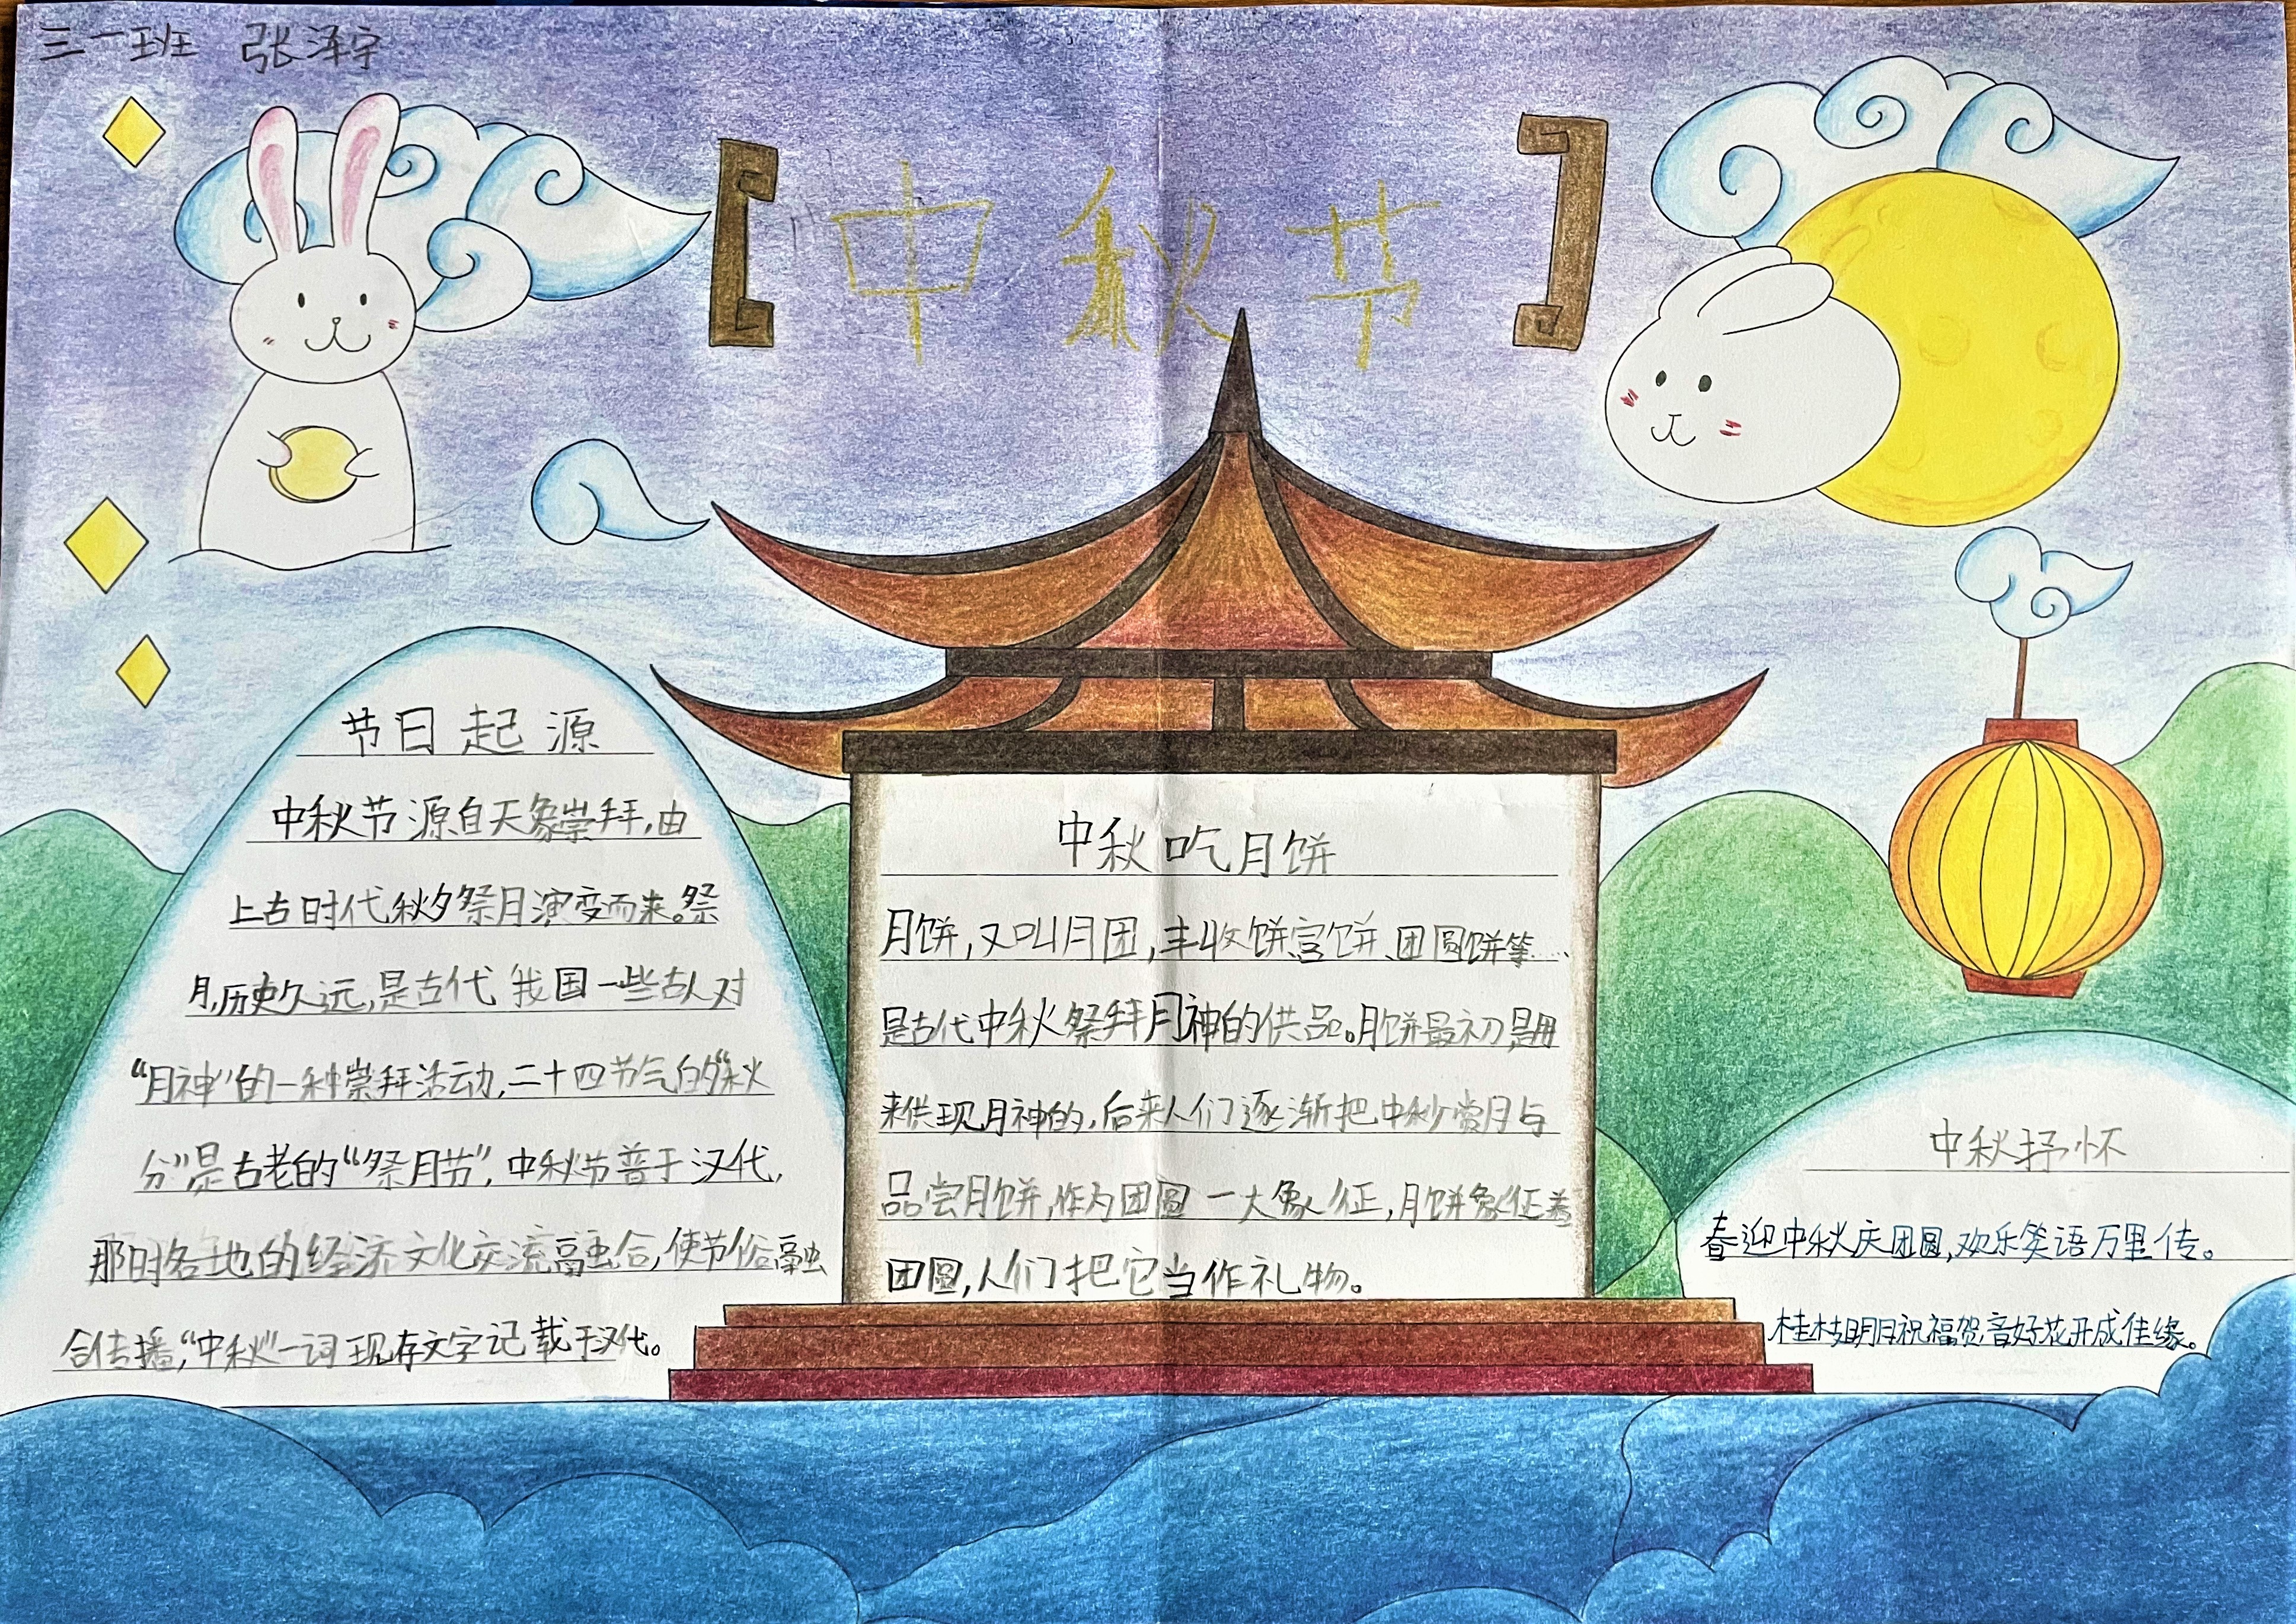 三一班 张泽宇
中秋节
节日起源
中秋节源自天象崇拜,由
上古时代秋夕祭月演变而来。祭
月,历史久远,是古代我国一些古人对
“月神”的一种崇拜活动,二十四节气的“秋
分”是古老的“祭月节”,中秋节普于汉代,
那时各地的经济文化交流融合,使节俗融
合传播,“中秋”一词现存文字记载于汉代。
中秋吃月饼
月饼,又叫月团,丰收饼、宫饼、团圆饼等……
是古代中秋祭拜月神的供品。月饼最初是用
来供现月神的,后来人们逐渐把中秋赏月与
品尝月饼,作为团圆一大象征,月饼象征着
团圆,人们把它当作礼物。
中秋抒怀
春迎中秋庆团圆,欢乐笑语万里传。
桂枝明月祝福贺音好花开成佳缘。